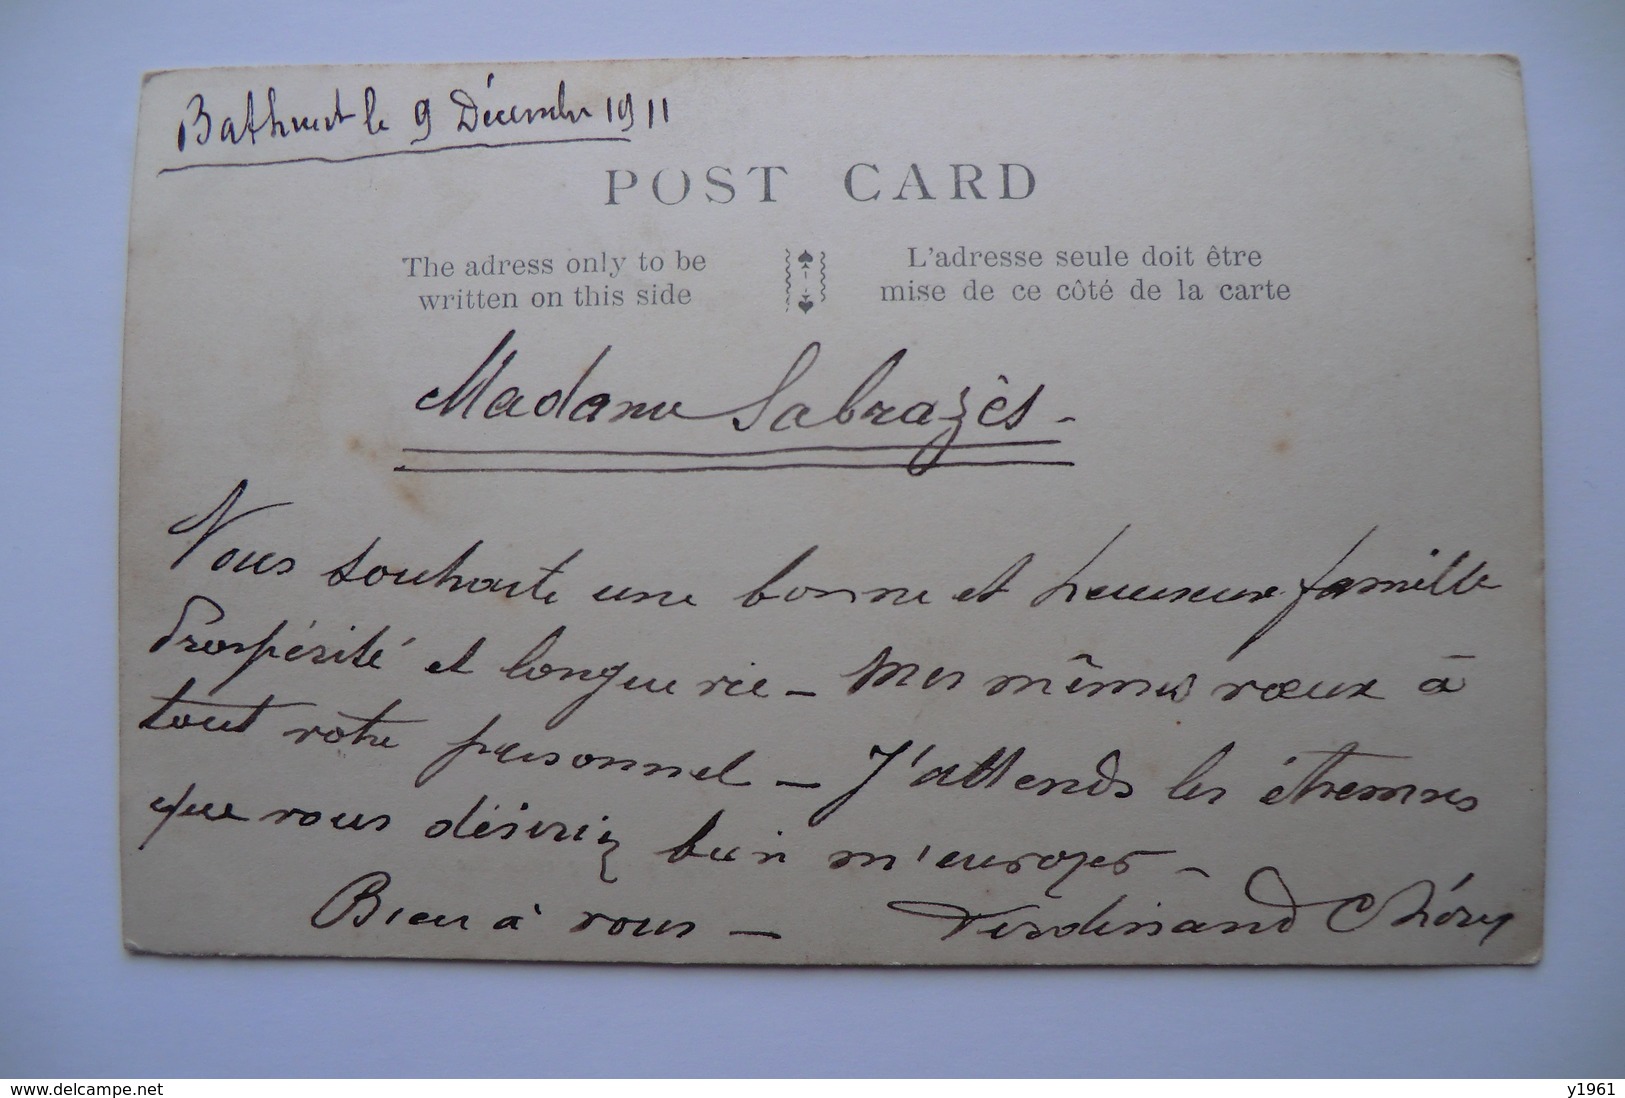 Bathurst le 9 Décembre 1911
POST CARD
The adress only to be
written on this side
L'adresse seule doit être
mise de ce côté de la carte
Madame Sabrazès -
Vous souhaite une bonne et heureuse famille
Prospérité et longue vie - Mes mêmes vœux à
tout votre personnel - J'attends les étrennes
que vous désiriez bien m'envoyer -
Bien à vous - Ferdinand Chéry
delcampe.net
y1961